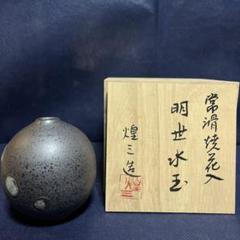 常滑焼花入
明世水玉
煌三造